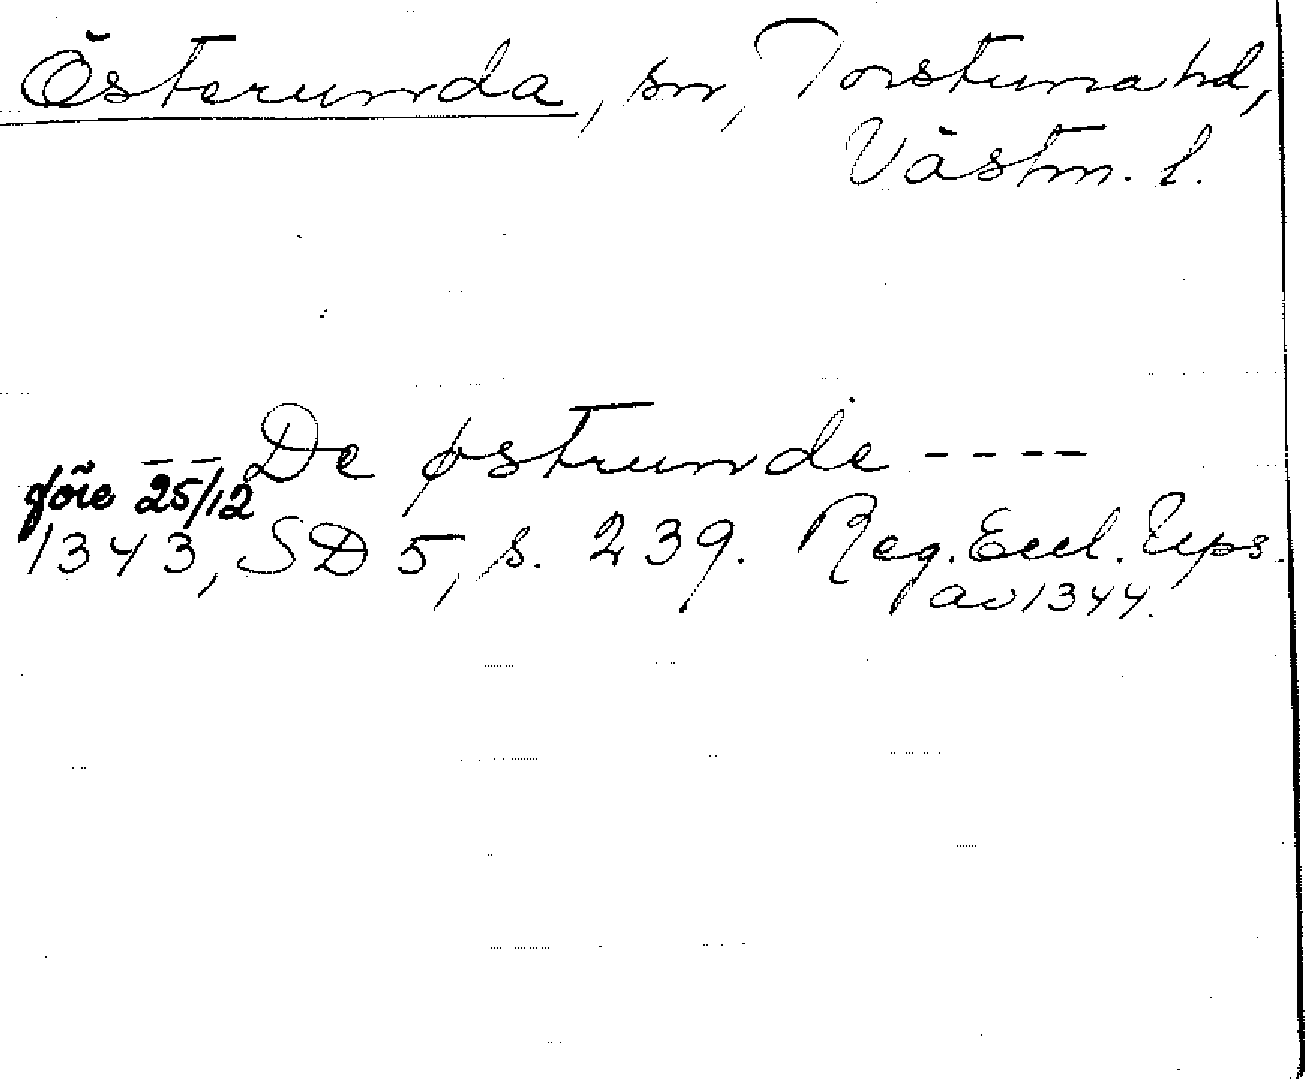 Österunda, sn, Torstuna hd,
Västm. l.
-- De østrunde ----
före 25/12
1343, SD 5, s. 239. Reg. Eccl. Ups.
av 1344.